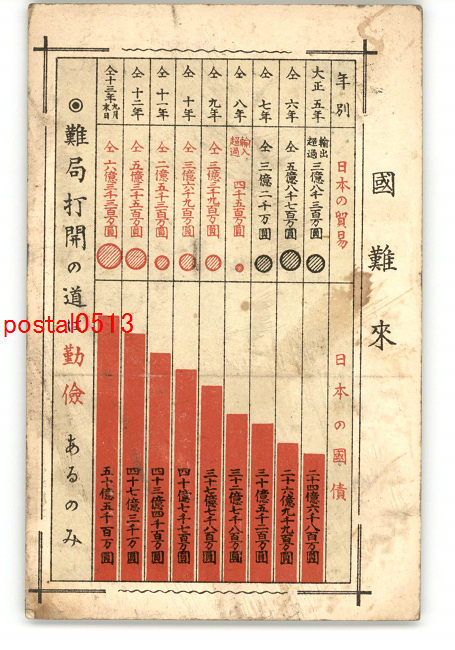 國難來
年別
日本の貿易
日本の國債
大正五年
輸出超過
三億八千三百万圓
二十四億六千八百万圓
仝六年
仝
五億八千七百万圓
二十六億九千九百万圓
仝七年
仝
三億二千万圓
三十億五千二百万圓
仝八年
輸入超過
四千五百万圓
三十二億七千八百万圓
仝九年
仝
三億三千九百万圓
三十七億七千八百万圓
仝十年
仝
三億六千九百万圓
四十億七千七百万圓
仝十一年
仝
二億五千三百万圓
四十三億四千百万圓
仝十二年
仝
五億三千五百万圓
四十七億三千万圓
仝十三年九月末日
仝
六億三千三百万圓
五十億五千百万圓
◉難局打開の道は勤儉あるのみ
postal0513